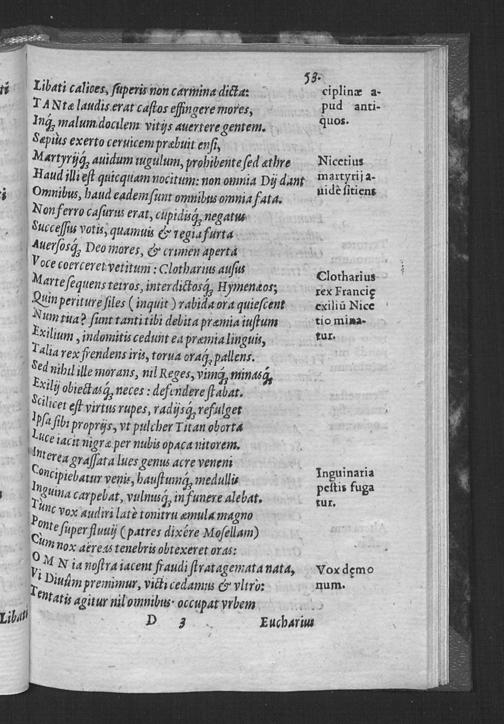 53.
Libati calices, superis non carmina dicta:
TANtæ laudis erat castos effingere mores,
Inq́; malum docilem vitijs auertere gentem.
Sæpiùs exerto ceruicem præbuit ensi,
Martyrijq́; auidum iugulum, prohibente sed æthre
Haud illi est quicquam nocitum: non omnia Dij dant
Omnibus, haud eadem sunt omnibus omnia fata.
Non ferro casurus erat, cupidisq́; negatus
Successus votis, quamuis & regia furta
Auersosq́; Deo mores, & crimen aperta
Voce coerceret vetitum: Clotharius ausus
Marte sequens tetros, interdictosq́; Hymenæos;
Quin periture siles (inquit) rabida ora quiescent
Num tua? sunt tanti tibi debita præmia iustum
Exilium, indomitis cedunt ea præmia linguis,
Talia rex frendens iris, torua oraq́; pallens.
Sed nihil ille morans, nil Reges, vimq́; minasq́;
Exilij obiectasq́; neces: defendere stabat.
Scilicet est virtus rupes, radijsq́; refulget
Ipsa sibi proprijs, vt pulcher Titan oborta
Luce iacit nigræ per nubis opaca nitorem.
Interea grassata lues genus acre veneni
Concipiebatur venis, haustumq́; medullis
Inguina carpebat, vulmusq́; in funere alebat.
Tunc vox audiri latè tonitru æmula magno
Ponte super fluuij (patres dixére Mosellam)
Cum nox aëreas tenebris obtexeret oras:
OMNia nostra iacent fraudi stratagemata nata,
Vi Diuûm premimur, victi cedamus & vltrò:
Tentatis agitur nil omnibus occupat vrbem
D 3 Eucharius
ciplinæ a-
pud anti-
quos.
Nicetius
martyrij a-
uidè sitiens
Clotharius
rex Francię
exiliũ Nice
tio mina-
tur.
Inguinaria
pestis fuga
tur.
Vox dęmo
num.
Libati